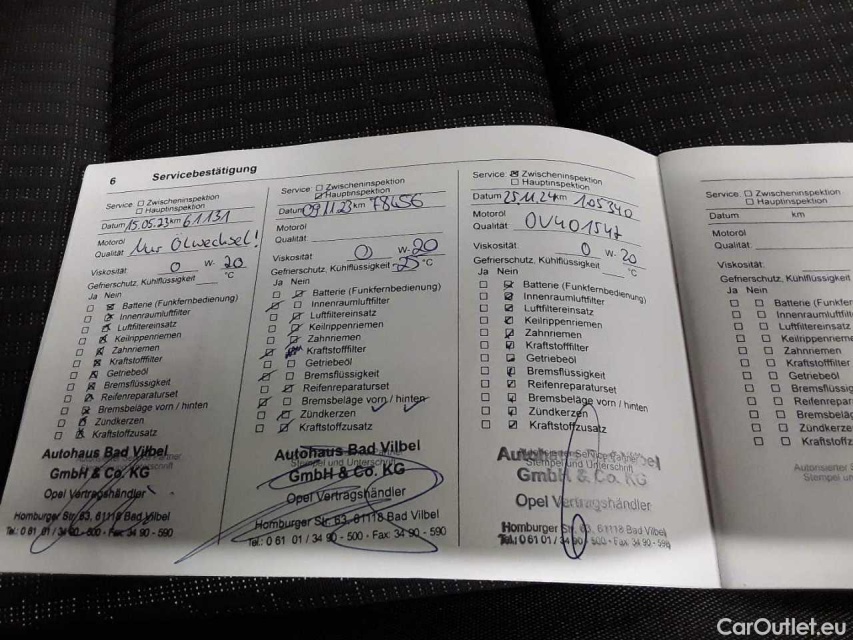 6 Servicebestätigung
Service: ☐ Zwischeninspektion
☐ Hauptinspektion
Datum 15.05.23 km 61131
Motoröl
Qualität Nur Ölwechsel!
Viskosität 0 W- 20
Gefrierschutz, Kühlflüssigkeit °C
Ja Nein
☐ ☒ Batterie (Funkfernbedienung)
☐ ☒ Innenraumluftfilter
☐ ☒ Luftfiltereinsatz
☐ ☒ Keilrippenriemen
☐ ☒ Zahnriemen
☐ ☒ Kraftstofffilter
☐ ☒ Getriebeöl
☐ ☒ Bremsflüssigkeit
☐ ☒ Reifenreparaturset
☐ ☒ Bremsbeläge vorn / hinten
☐ ☒ Zündkerzen
☐ ☒ Kraftstoffzusatz
Autohaus Bad Vilbel
GmbH & Co. KG
Opel Vertragshändler
Homburger Str. 63, 61118 Bad Vilbel
Tel.: 0 61 01 / 34 90 - 500 - Fax: 34 90 - 590
Service: ☐ Zwischeninspektion
☑ Hauptinspektion
Datum 09.11.23 km 78456
Motoröl
Qualität
Viskosität 0 W- 20
Gefrierschutz, Kühlflüssigkeit -25 °C
Ja Nein
☐ ☑ Batterie (Funkfernbedienung)
☑ ☐ Innenraumluftfilter
☐ ☑ Luftfiltereinsatz
☐ ☑ Keilrippenriemen
☐ ☑ Zahnriemen
☑ Kraftstofffilter
☐ ☐ Getriebeöl
☑ ☐ Bremsflüssigkeit
☐ ☑ Reifenreparaturset
☑ ☐ Bremsbeläge vorn ✓ / hinten ✓
☑ Zündkerzen
☐ ☑ Kraftstoffzusatz
Autohaus Bad Vilbel
Stempel und Unterschrift
GmbH & Co. KG
Opel Vertragshändler
Homburger Str. 63, 61118 Bad Vilbel
Tel.: 0 61 01 / 34 90 - 500 - Fax: 34 90 - 590
Service: ☒ Zwischeninspektion
☐ Hauptinspektion
Datum 25.11.24 km 105340
Motoröl
Qualität OV401547
Viskosität 0 W- 20
Gefrierschutz, Kühlflüssigkeit °C
Ja Nein
☐ ☑ Batterie (Funkfernbedienung)
☐ ☑ Innenraumluftfilter
☐ ☑ Luftfiltereinsatz
☐ ☑ Keilrippenriemen
☐ ☑ Zahnriemen
☐ ☑ Kraftstofffilter
☐ ☑ Getriebeöl
☐ ☑ Bremsflüssigkeit
☐ ☑ Reifenreparaturset
☐ ☑ Bremsbeläge vorn / hinten
☐ ☑ Zündkerzen
☐ ☑ Kraftstoffzusatz
Stempel und Unterschrift
GmbH & Co. KG
Opel Vertragshändler
Homburger Str. 63, 61118 Bad Vilbel
Tel.: 0 61 01 / 34 90 - 500 - Fax: 34 90 - 590
Service: ☐ Zwischeninspektion
☐ Hauptinspektion
Datum km
Motoröl
Qualität:
Viskosität:
Gefrierschutz, Kühlflüssigkeit
Ja Nein
☐ ☐ Batterie (Funkfer
☐ ☐ Innenraumluftfilter
☐ ☐ Luftfiltereinsatz
☐ ☐ Keilrippenrieme
☐ ☐ Zahnriemen
☐ ☐ Kraftstofffilter
☐ ☐ Getriebeöl
☐ ☐ Bremsflüssig
☐ ☐ Reifenrepar
☐ ☐ Bremsbeläg
☐ ☐ Zündkerze
☐ ☐ Kraftstoffz
Autorisierter
Stempel un
CarOutlet.eu